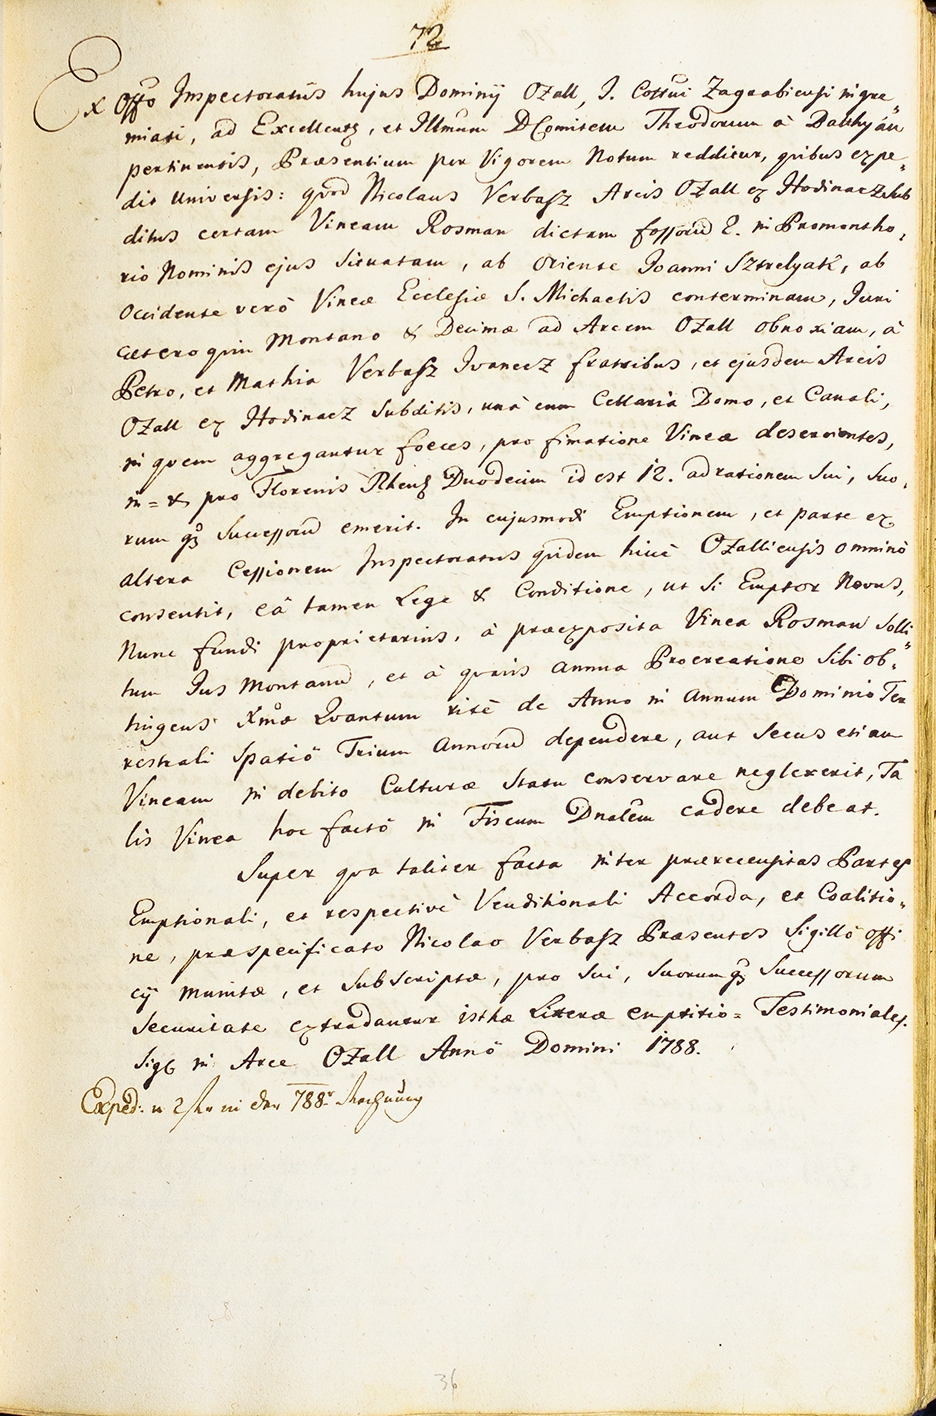 72
Ex Offo Inspectoratûs hujus Dominij Ozall, I. Cottui Zagrabiensi ingre
miati, ad Excellentz, et Illmum D Comitem Theodorum à Batthyán
pertinentis, Præsentium per Vigorem Notum redditur, quibus expe„
dit Universis: quod Nicolaus Verbasz Arcis Ozall ex Hodinacz Sub
ditus certam Vineam Rosman dictam fossorũ 2. in Promontho„
rio Nominis ejus Situatam, ab Oriente Joanni Sztrelyak, ab
Occidente verò Vineæ Ecclesiæ S. Michaelis conterminam, Juri
cæteroquin Montano & Decimæ ad Arcem Ozall obnoxiam, à
Petro, et Mathia Verbasz Ivanecz fratribus, et ejusdem Arcis
Ozall ex Hodinacz Subditis, unà cum Cellaria Domo, et Canali,
in quem aggregantur foeces, pro fimatione Vineæ deservientes,
in = & pro Florenis Rhens Duodecim id est 12. ad rationem Sui, Suo„
rum qz Successorũ emerit. In cujusmodi Emptionem, et parte ex
altera Cessionem Inspectoratus quidem hicce Ozalliensis omninò
consentit, eâ tamen Lege & Conditione, ut Si Emptor Novus,
Nunc fundi proprietarius, à præexposita Vinea Rosman Soli„
tum Jus Montanũ, et à quavis annua Procreatione Sibi ob„
tingens Xmæ Quantum ritè de Anno in Annum Dominio Ter
restrali Spatiô Trium Annorũ dependere, aut Secus etiam
Vineam in debito Culturæ Statu conservare neglexerit, Ta
lis Vinea hoc factô in Fiscum Dnalem cadere debeat.
Super qua taliter facta inter prærecensitas Partes
Emptionali, et respectivè Venditionali Accorda, et Coalitio„
ne, præspecificato Nicolao Verbasz Præsentes Sigillô offi
cij munitæ, et Subscriptæ, pro Sui, Suorumqz Successorum
Securitate extradantur isthæ Literæ emptitio = Testimoniales.
Sigl in Arce Ozall Annô Domini 1788.
Exped: in der 788r Rechnung
36